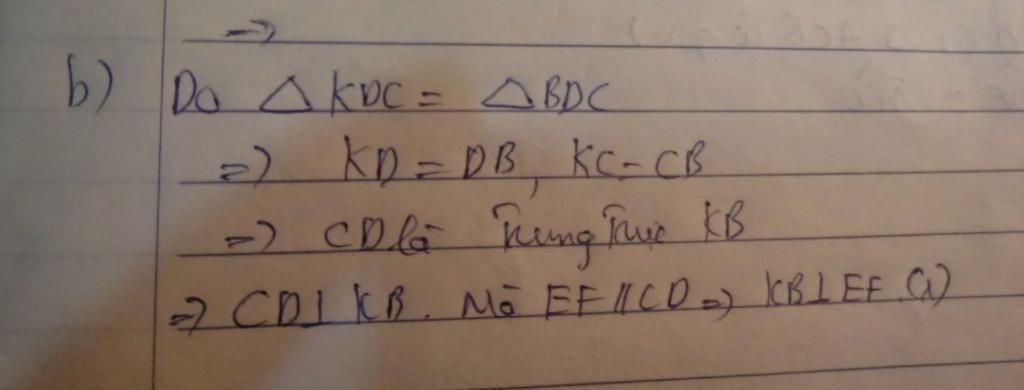 →
b) Do △KDC = △BDC
=> KD = DB, KC = CB
=> CD là Trung Trực KB
=> CD⊥KB. Mà EF//CD => KB⊥EF (1)